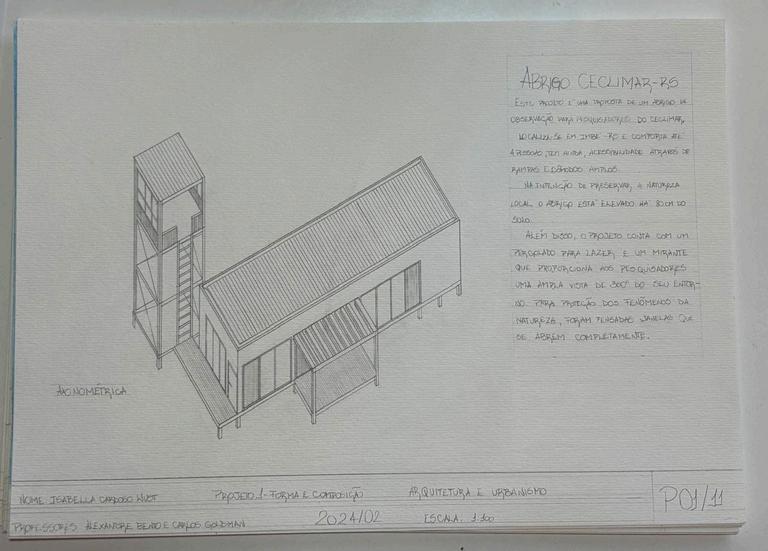 ABRIGO CECLIMAR-RS
ESTE PROJETO É UMA PROPOSTA DE UM ABRIGO DE
OBSERVAÇÃO PARA PESQUISADORES DO CECLIMAR,
LOCALIZA-SE EM IMBÉ-RS E COMPORTA ATÉ
4 PESSOAS, TEM AINDA, ACESSIBILIDADE ATRAVÉS DE
RAMPAS E CÔMODOS AMPLOS.
NA INTENÇÃO DE PRESERVAR A NATUREZA
LOCAL O ABRIGO ESTÁ ELEVADO HÁ 80CM DO
SOLO.
ALÉM DISSO, O PROJETO CONTA COM UM
PERGOLADO PARA LAZER, E UM MIRANTE
QUE PROPORCIONA AOS PESQUISADORES
UMA AMPLA VISTA DE 360° DO SEU ENTOR-
NO. PARA PROTEÇÃO DOS FENÔMENOS DA
NATUREZA, FORAM PENSADAS JANELAS QUE
SE ABREM COMPLETAMENTE.
AXONOMÉTRICA
NOME: ISABELLA CARDOSO WUST
PROJETO 1- FORMA E COMPOSIÇÃO
ARQUITETURA E URBANISMO
P01/11
PROFESSORES: ALEXANDRE BENTO E CARLOS GOLDMAN
2024/02
ESCALA: 1:100